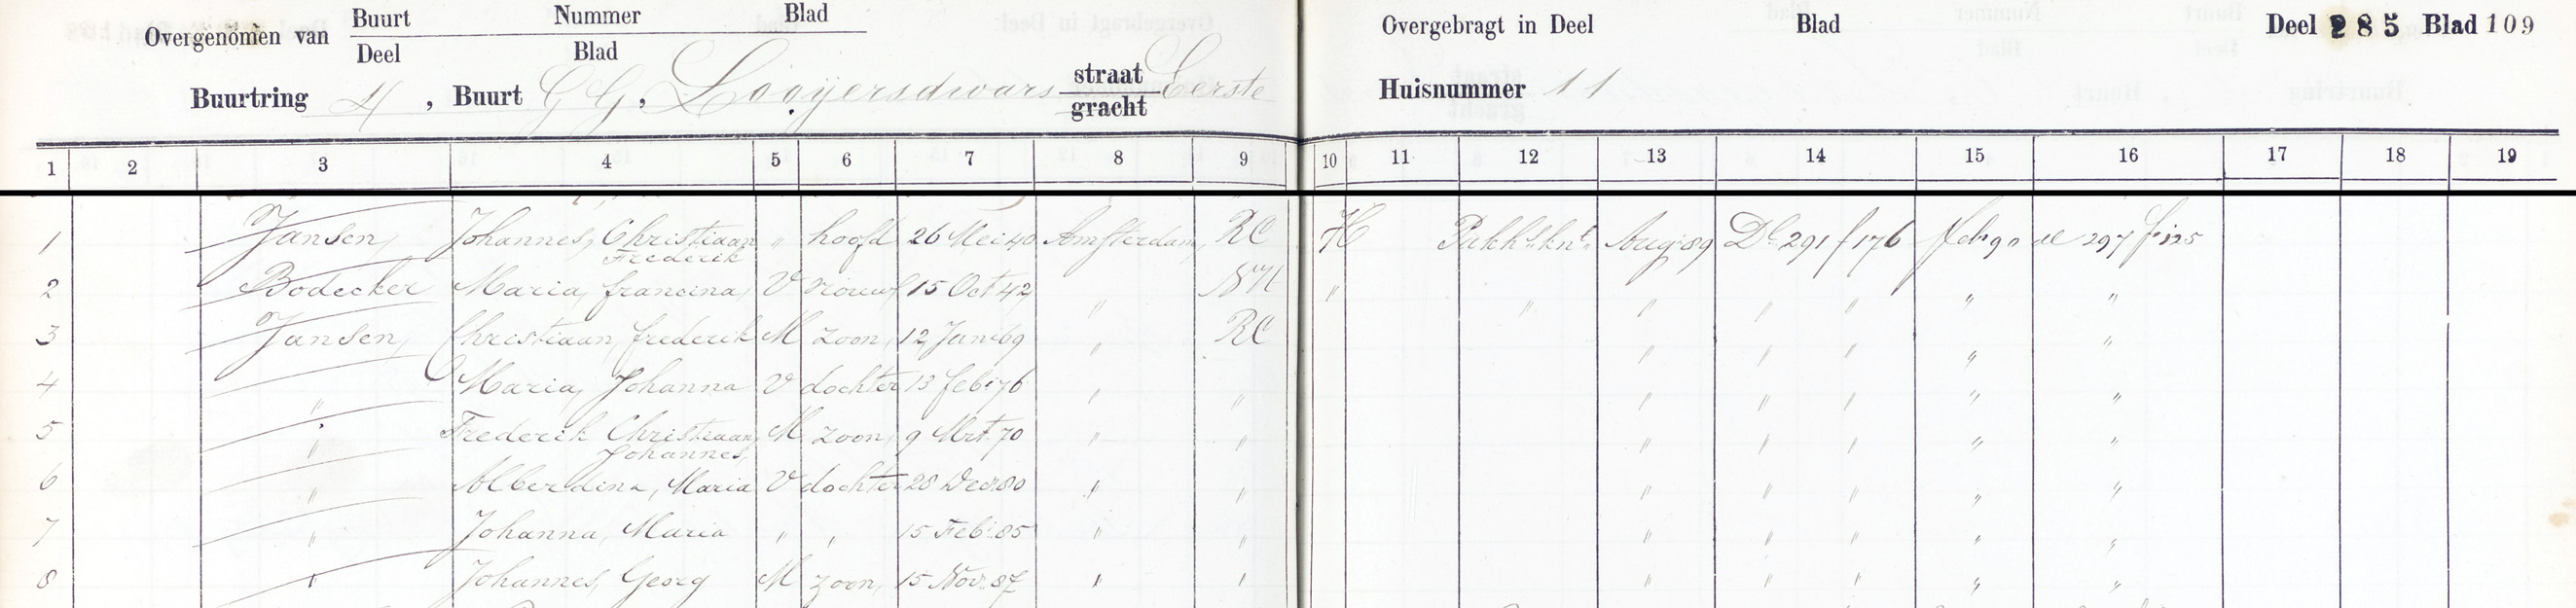 Overgenomen van Buurt Nummer Blad
Deel Blad
Overgebragt in Deel Blad
Deel 285 Blad 109
Buurtring 4, Buurt GG, Looyersdwars straat Eerste
gracht
Huisnummer 11
1 2 3 4 5 6 7 8 9 10 11 12 13 14 15 16 17 18 19
1 Jansen, Johannes, Christiaan " hoofd 26 Mei 40 Amsterdam, RC H Pakhskt. Aug 89 Dl 291 f 176 feb 90 dl 297 f 125
Frederik
2 Bodecker Maria, francina, V vrouw 15 Oct 42 " NH " " " " " " "
3 Jansen, Christiaan, frederik M zoon, 12 Juni 69 " RC " " " " "
4 " Maria, Johanna V dochter 13 feb 76 " " " " " " "
5 " Frederik Christiaan, M zoon, 9 Mrt. 70 " " " " " " "
Johannes,
6 " Alberdina, Maria V dochter 28 Dec 80 " " " " " " "
7 " Johanna, Maria " " 15 Feb 85 " " " " " " "
8 " Johannes, Georg M zoon, 15 Nov. 87 " " " " " " "